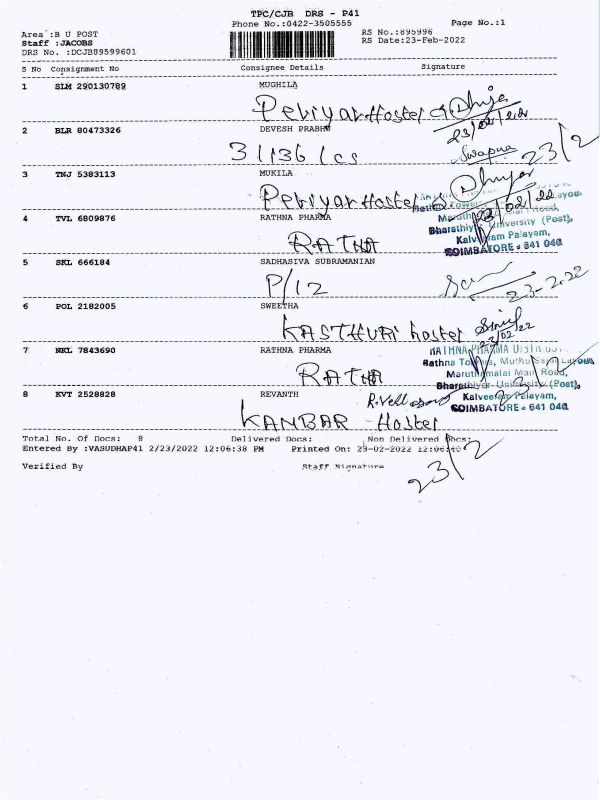 TPC/CJB DRS - P41
Phone No.:0422-3505555
Page No.:1
Area :B U POST
RS No.:895996
Staff :JACOBS
RS Date:23-Feb-2022
DRS No. :DCJB89599601
S No Consignment No Consignee Details Signature
1 SLM 290130789 MUGHILA
Periyar Hostel
23/02/22
2 BLR 80473326 DEVESH PRABHU
31136 Ics Swapna 23/2
3 TNJ 5383113 MUKILA
Periyar Hostel 23/02/22
4 TVL 6809876 RATHNA PHARMA
RATNA
Rathna Towers, Layout
Road,
Bharathiyar University (Post),
Kalveeram Palayam,
COIMBATORE - 641 046
5 SKL 666184 SADHASIVA SUBRAMANIAN
P/12 23-2-22
6 POL 2182005 SWEETHA
KASTHURI hostel
23/02/22
7 NKL 7843690 RATHNA PHARMA
RATNA
RATHNA PHARMA
Rathna Towers, Muthu Layout
Maruthamalai Main Road,
Bharathiyar University (Post),
Kalveeram Palayam,
COIMBATORE - 641 046
23/2
8 KVT 2528828 REVANTH
KANBAR Hostel
Total No. Of Docs: 8 Delivered Docs: Non Delivered Docs:
Entered By :VASUDHAP41 2/23/2022 12:06:38 PM Printed On: 23-02-2022 12:06:40
Verified By Staff Signature
23/2